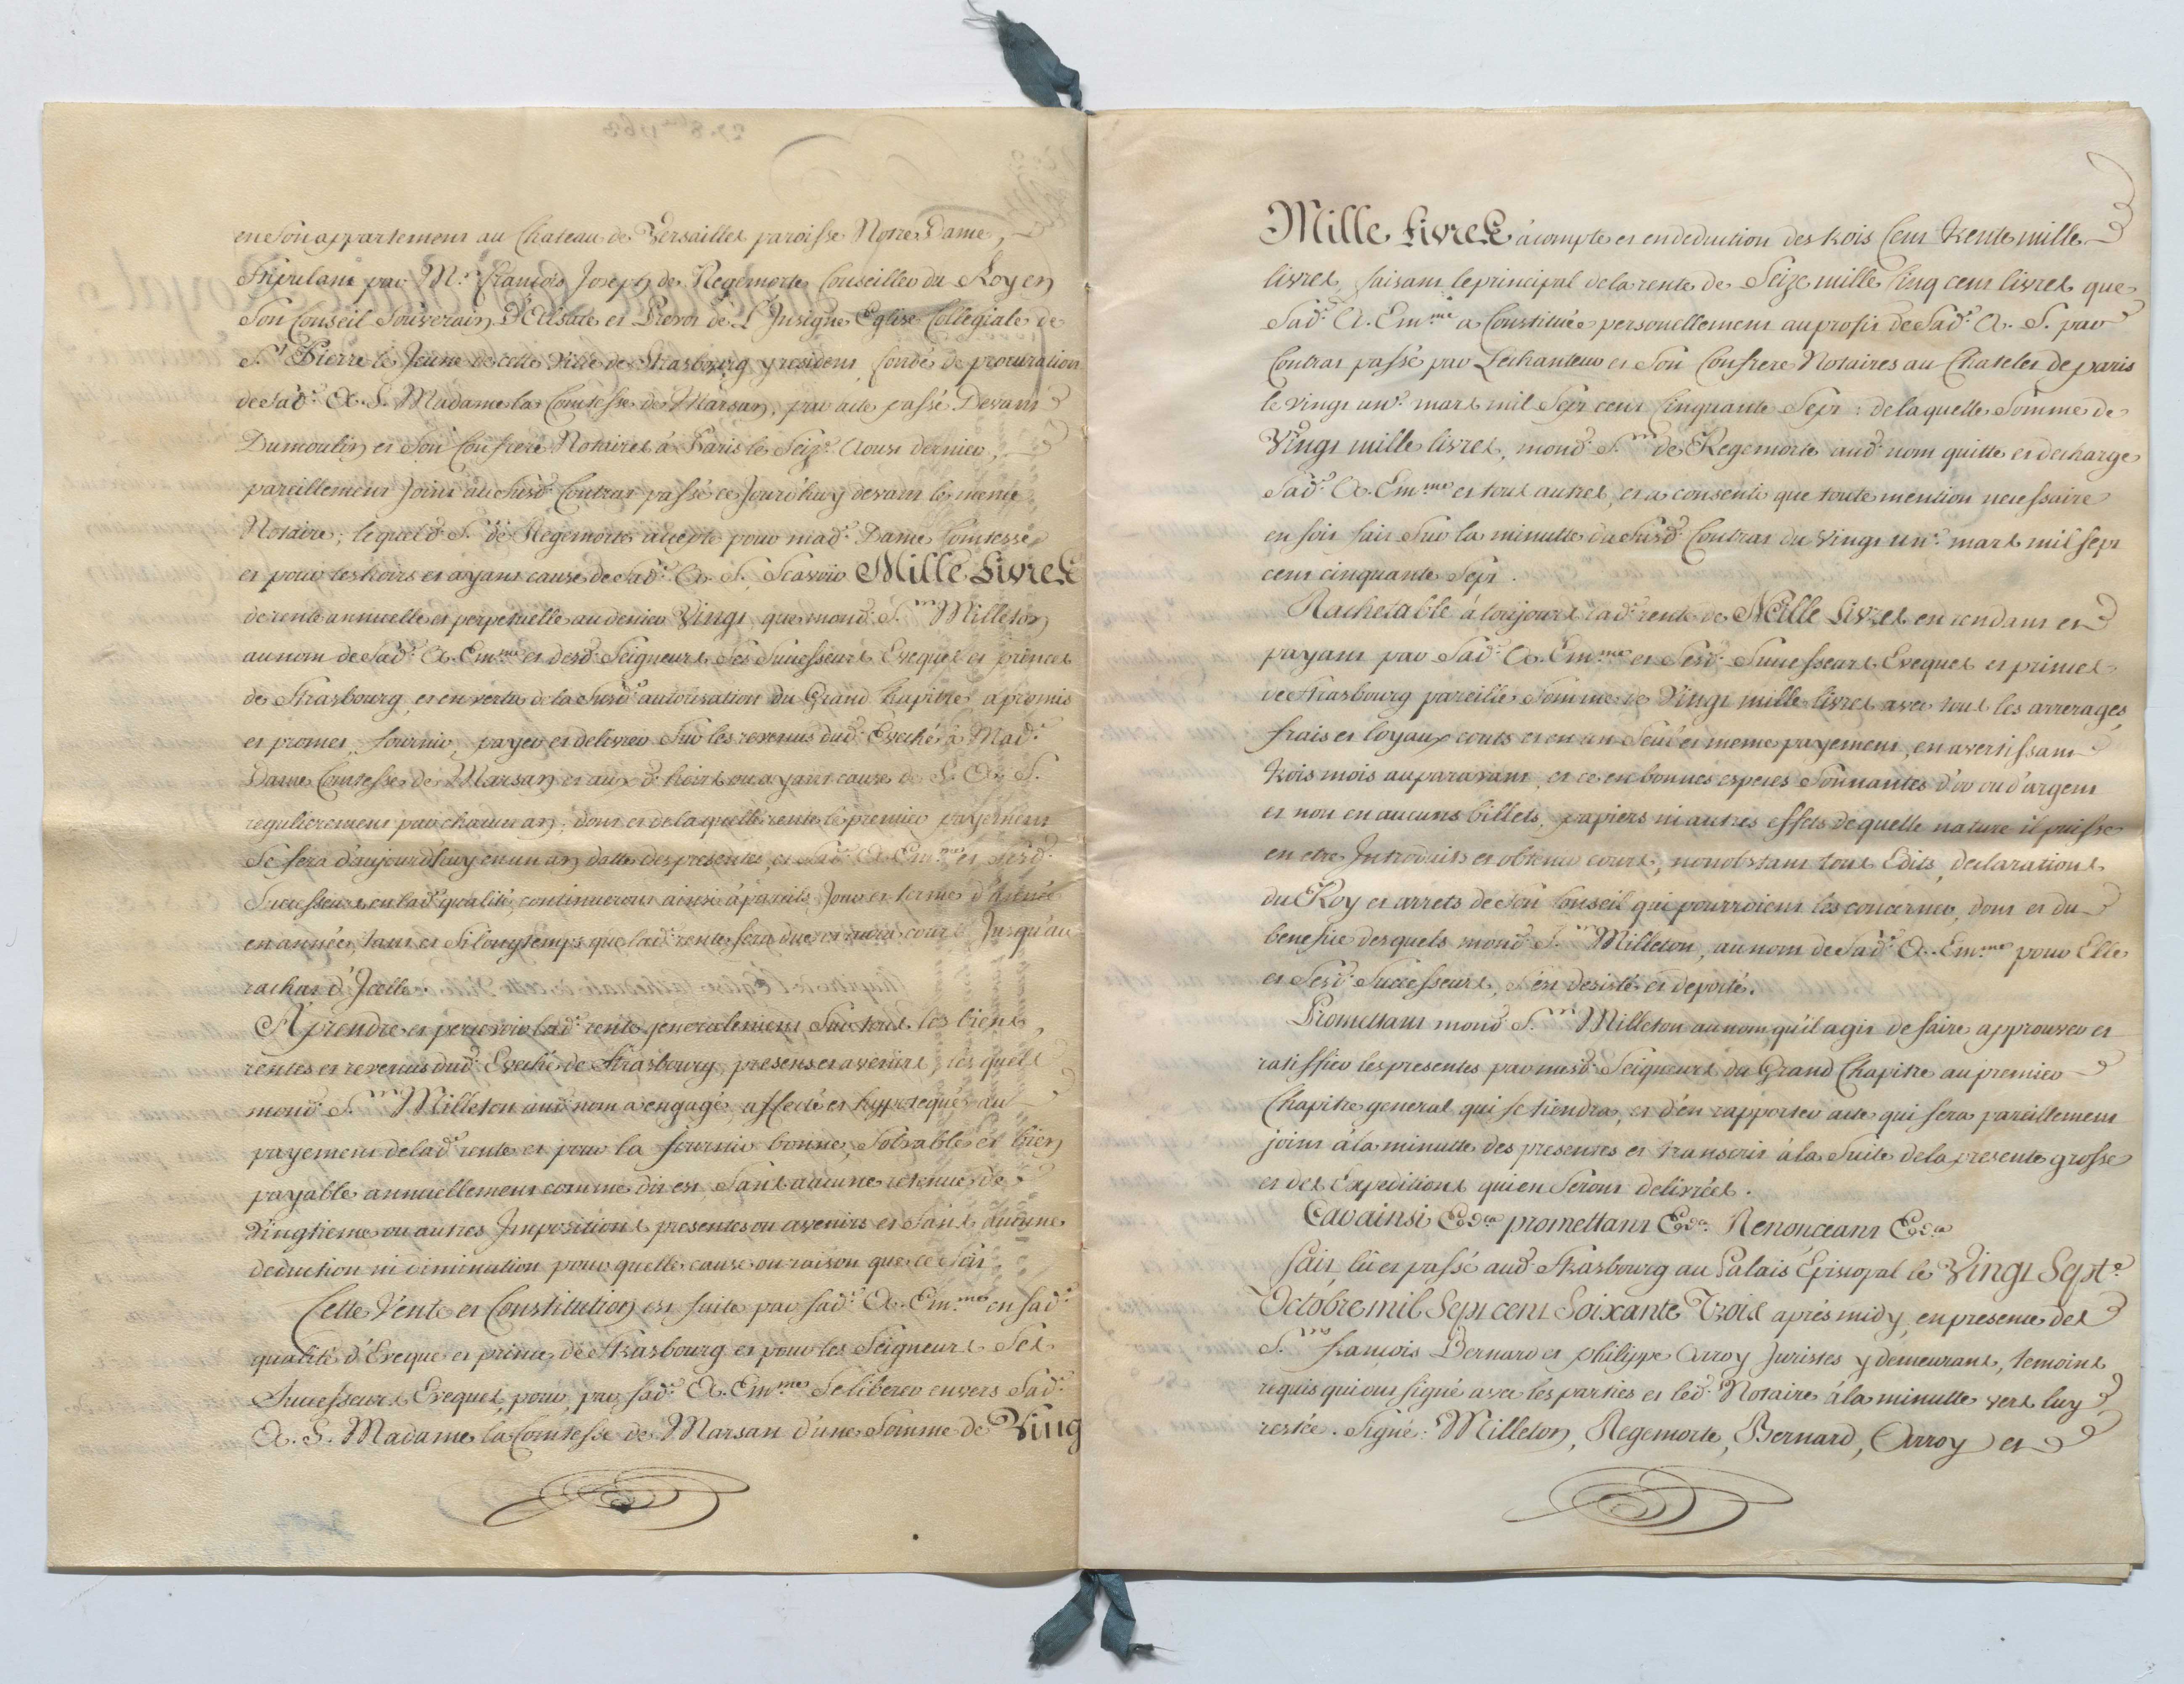 en Son appartement au Chateau de Versailles paroisse Notre Dame,
Stipulant par M.r françois Joseph de Regemorte Conseiller du Roy en
Son Conseil Souverain D'Alsace et Prevot de L'Insigne Eglise Collegiale de
S.t Pierre le Jeune de cette Ville de Strasbourg y resident, fondé de procuration
de Sad.e A. S. Madame la Comtesse de Marsan, par acte passé Devant
Dumoulin et Son Confrere Notaires à Paris le Seize Aoust dernier,
pareillement Joint au Susd. Contrat passé ce Jourd'huy devant le meme
Notaire; lequel d. S.r de Regemorte accepte pour mad.e Dame Comtesse
et pour les hoirs et ayans cause de Sad.e A. S. Scavoir Mille Livres
de rente annuelle et perpetuelle au denier Vingt, que mond. S.r Milleton
au nom de Sad.e A. Em.me et desd. Seigneurs Ses Successeurs Eveques et princes
de Strasbourg, et en vertu de la Susd.e autorisation du Grand Chapitre, a promis
et promet, fournir, payer et delivrer Sur les revenus dud. Eveché à Mad.e
Dame Comtesse de Marsan et aux d. hoirs ou ayans cause de S. A. S.
regulierement par chacun an; dont et de laquelle rente le premier payement
Se fera d'aujourdhuy en un an datte des presentes, et Sad.e A. Em.me et Sesd.
Successeurs en lad.e qualité, continueront ainsi à pareils Jour et terme d'année
en année, tant et Si longtemps que lad.e rente sera due et aura cours Jusqu'au
rachat d'Icelle.
A prendre et percevoir lad.e rente generalement Sur tous les biens,
rentes et revenus dud. Eveché de Strasbourg, presens et avenirs, lesquels
mond. S.r Milleton aud. nom a engagé, affecté et hypotequé au
payement de lad.e rente et pour la fournir bonne, Solvable et bien
payable annuellement comme dit est, Sans aucune retenue de
Vingtieme ou autres Impositions presentes ou avenirs et Sans aucune
deduction ni diminution pour quelle cause ou raison que ce Soit.
Cette Vente et Constitution est faite par sad.e A. Em.me en sad.e
qualité d'Eveque et prince de Strasbourg et pour les Seigneurs Ses
Successeurs Eveques, pour, par sad.e A. Em.me Se liberer envers Sad.e
A. S. Madame la Comtesse de Marsan d'une Somme de Ving
Mille Livres à compte et en deduction des trois Cent trente mille
livres, faisant le principal de la rente de Seize mille Cinq cent livres que
Sad.e A. Em.me a Constituée personellement au profit de Sad.e A. S. par
Contrat passé par Lechanteur et Son Confrere Notaires au Chatelet de paris
le vingt un.e mars mil Sept cent Cinquante Sept: de laquelle Somme de
Vingt mille livres, mond. S.r de Regemorte aud. nom quitte et decharge
Sad.e A. Em.me et tous autres, et a consenti que toute mention necessaire
en soit fait Sur la minutte du Susd. Contrat du Vingt un.e mars mil sept
cent cinquante Sept.
Rachetable à toujours lad.e rente de Mille Livres en rendant et
payant par Sad.e A. Em.me et Sesd. Successeurs Eveques et princes
de Strasbourg pareille Somme de Vingt mille livres avec tous les arrerages,
frais et loyaux couts et en un Seul et meme payement, en avertissant
trois mois auparavant, et ce en bonnes especes Sonnantes d'or ou d'argent
et non en aucuns billets, papiers ni autres effets de quelle nature il puisse
en etre Introduits et obtenir cours, nonobstant tous Edits, declarations
du Roy et arrets de Son Conseil qui pourroient les concerner, dont et du
benefice desquels mond. S.r Milleton, au nom de Sad.e A. Em.me pour Elle
et Sesd. Successeurs, s'est desisté et deporté.
Promettant mond. S.r Milleton au nom qu'il agit de faire approuver et
ratiffier les presentes par mesd. Seigneurs du Grand Chapitre au premier
Chapitre general qui se tiendra, et d'en rapporter acte qui sera pareillement
joint à la minutte des presentes et transcrit à la Suite de la presente grosse
et des Expeditions qui en Seront delivrées.
Car ainsi &c.a promettant &c.a Renonceant &c.a
fait, lû et passé aud. Strasbourg au Palais Episcopal le Vingt Sept.e
Octobre mil Sept cent Soixante Trois après midy, en presence des
S.rs françois Bernard et philippe Arroy Juristes y demeurans, temoins
requis qui ont signé avec les parties et led. Notaire à la minutte vers luy
restée. Signé: Milleton, Regemorte, Bernard, Arroy et